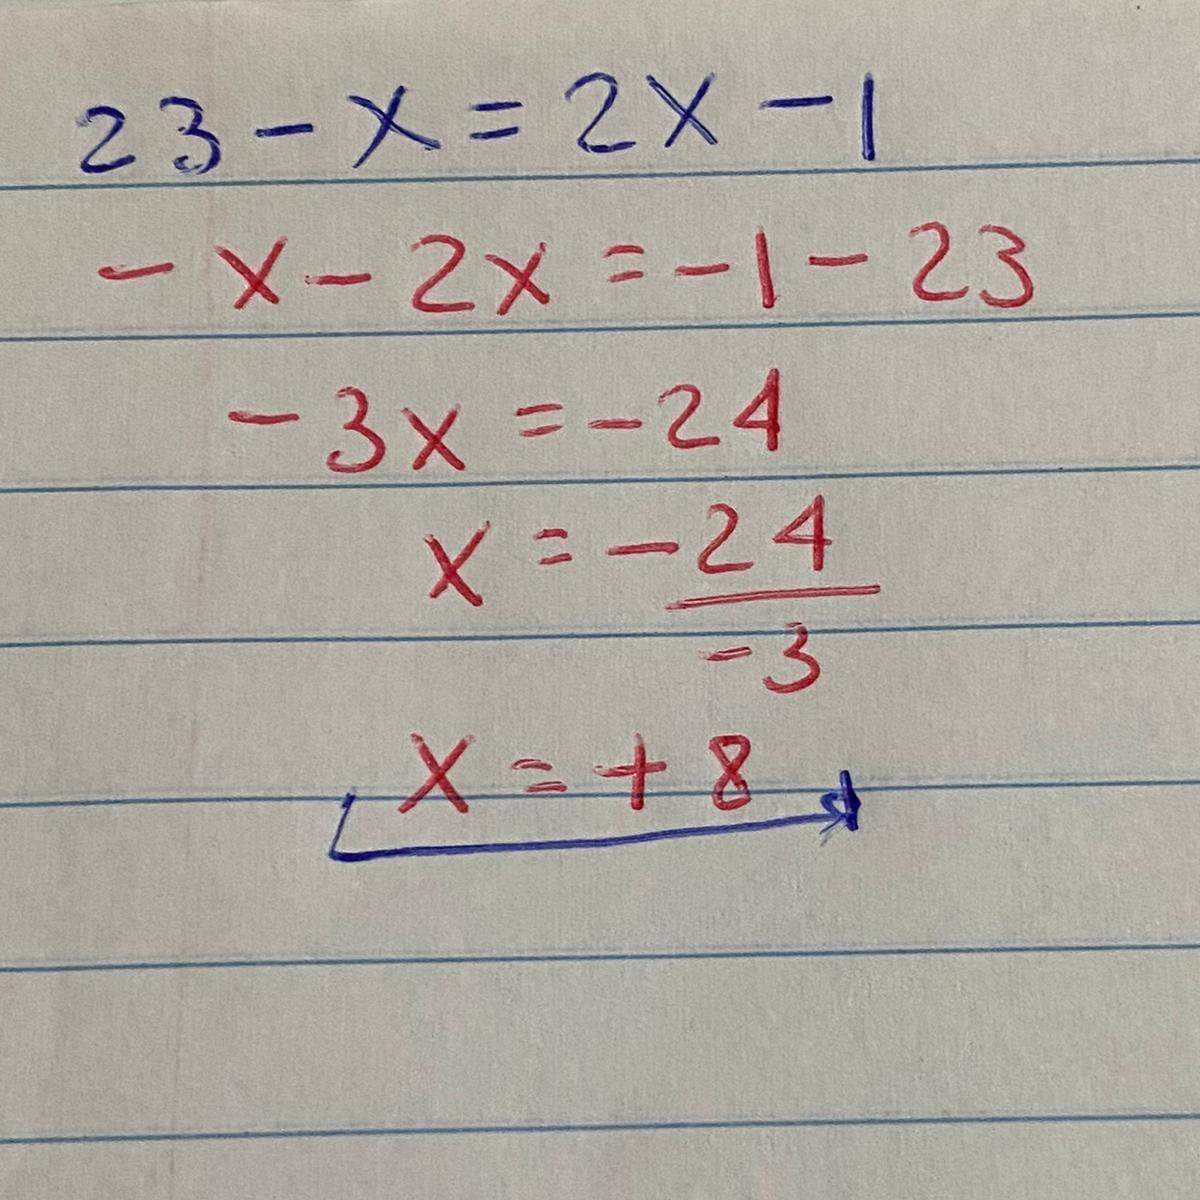 23 - x = 2x - 1
- x - 2x = - 1 - 23
- 3x = - 24
x = - 24
- 3
x = + 8